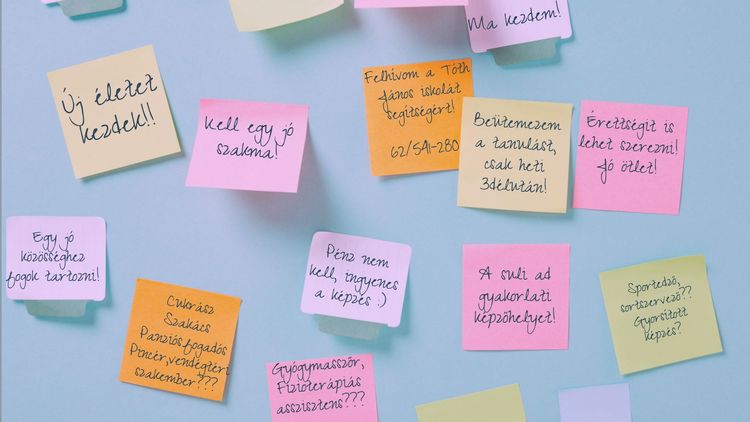 Ma kezdem!
Új életet
kezdek!!
Kell egy jó
szakma!
Felhívom a Tóth
János iskolát
segítségért!
62/541-280
Beütemezem
a tanulást,
csak heti
3délután!
Érettségit is
lehet szerezni!
Jó ötlet!
Egy jó
közösséghez
fogok tartozni!
Pénz nem
kell, ingyenes
a képzés :)
A suli ad
gyakorlati
képzőhelyet!
Sportedző,
sortszervező??
Gyorsított
képzés?
Cukrász
Szakács
Panziósfogadós
Pincér,vendégtéri
szakember???
Gyógymasszőr,
Fizioterápiás
asszisztens???